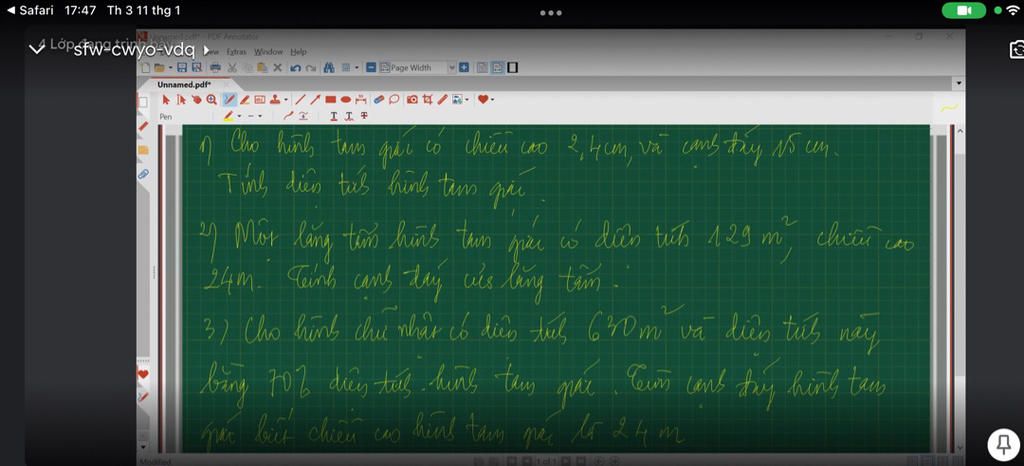 Safari 17:47 Th 3 11 thg 1
sfw-cwyo-vdq
Unnamed.pdf* - PDF Annotator
Extras Window Help
Page Width
Unnamed.pdf*
Pen
1) Cho hình tam giác có chiều cao 2,4cm, và cạnh đáy 15 cm.
Tính diện tích hình tam giác.
2) Một lăng tấm hình tam giác có diện tích 129 m², chiều cao
24m. Tính cạnh đáy của lăng tấm.
3) Cho hình chữ nhật có diện tích 630m² và diện tích này
bằng 70% diện tích hình tam giác. Tính cạnh đáy hình tam
giác biết chiều cao hình tam giác là 24m
Modified
1 of 1